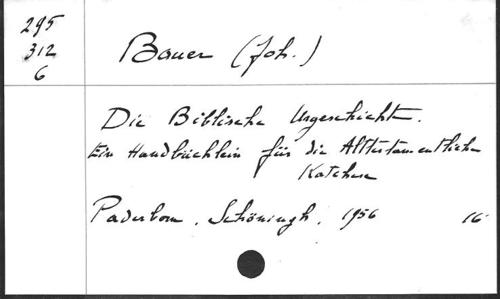 295
312
6
Bauer (Joh.)
Die Biblische Urgeschichte.
Ein Handbüchlein für die Alttestamentliche
Katechese
Paderborn, Schöningh, 1956 16